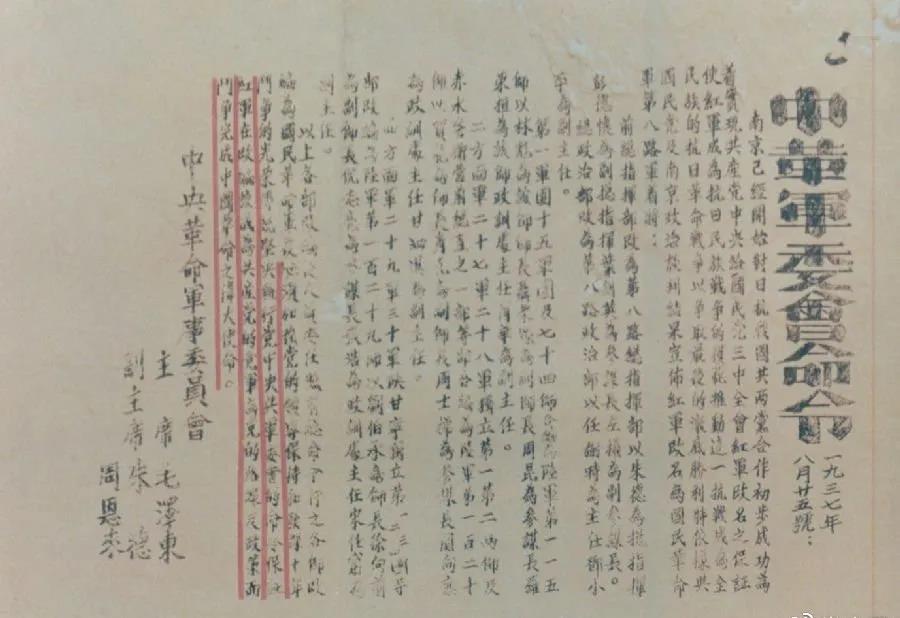 中華軍委會命令
一九三七年
八月廿五號：
南京已經開始對日抗戰國共兩黨合作初步成功為
着實現共產黨中央給國民党三中全會紅軍改名之保証
使紅軍成為抗日民族戰争的模範推動這一抗戰成為全
民族的抗日革命戰争以争取最後的澈底勝利特依據與
國民党及南京政治談判結果宣佈紅軍改名為國民革命
軍第八路軍着將：
前總指揮部改為第八路總指揮部以朱德為總指揮
彭德懷為副總指揮葉劍英為參謀長左權為副參謀長。
總政治部改為第八路政治部以任弼時為主任鄧小
平為副主任。
第一軍團十五軍團及七十四師合編為陸軍第一一五
師以林彪為該師師長聶榮臻為副師長周昆為參謀長羅
榮桓為該師政訓處主任蕭華為副主任。
二方面軍二十七軍二十八軍獨立第一第二兩師及
赤水警衛營前總直之一部等部合編為陸軍第一百二十
師以賀龍為師長蕭克為副師長周士第為參謀長關向應
為政訓處主任甘泗淇為副主任。
四方面軍二十九軍三十軍陝甘寧獨立第一二三四等
部改編為陸軍第一百二十九師以劉伯承為師長徐向前
為副師長倪志亮為參謀長張浩為政訓處主任宋任窮為
副主任。
以上各部改編
編為國民革命軍後必須加強党的領導保持和發揮十年
鬥爭的光榮傳統堅決執行党中央與軍委會的命令保証
紅軍在改編後成為共產党的党軍為党的路線及政策而
鬥爭完成中國革命之偉大使命。
中央革命軍事委員會
主席毛澤東
副主席朱德
周恩來